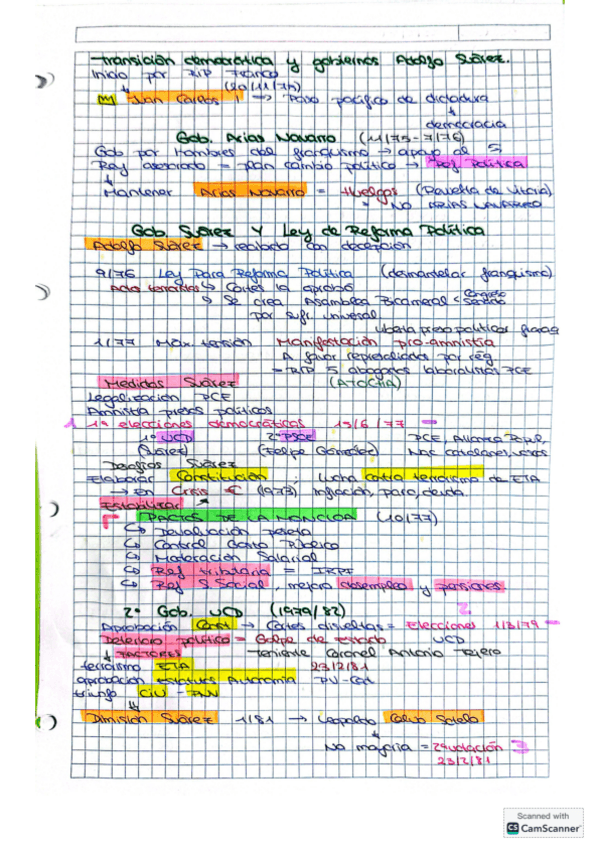 Transición democrática y gobiernos Adolfo Suárez.
Inicio por RIP Franco
(20/11/75)
Juan Carlos I → Paso pacífico de dictadura
democracia
Gob. Arias Navarro (11/75-7/76)
Gob por hombres del franquismo → apoyo al S
Rey asesorado = plan cambio político → Ref Política
Mantener Arias Navarro = Huelgas (Revuelta de Vitoria)
= NO ARIAS NAVARRO
Gob. Suárez Y Ley de Reforma Política
Adolfo Suárez → recibido con decepción
9/76 Ley Para Reforma Política (desmantelar franquismo)
Acto terroristas Cortes la aprobó
Se crea Asamblea Bicameral < Congreso
Senado
por sufr. universal.
libera presos políticos
1/77 Máx. tensión Manifestación pro-amnistía
A favor represaliados por rég
= RIP 5 abogados laboralistas PCE
Medidas Suárez (ATOCHA)
Legalización PCE
Amnistía presos políticos
1 1ª elecciones democráticas 15/6/77
1º UCD 2º PSOE PCE, Alianza Popul.
(Suárez) (Felipe González) Nac catalanes, vascos
Desafíos Suárez
Elaborar Constitución ; lucha contra terrorismo de ETA
→ En Crisis € (1973) Inflación, paro, deuda.
Estabilizar *
PACTOS DE LA MONCLOA (10/77)
Devaluación peseta
Control Gasto Público
Moderación Salarial
Ref tributaria = IRPF
Ref S. Social, mejora desempleo y pensiones
2º Gob. UCD (1979/82) 2
Aprobación Const → Cortes disueltas = Elecciones 1/3/79
Deterioro político = Golpe de Estado UCD
FACTORES Teniente Coronel Antonio Tejero
terrorismo ETA 23/2/81
aprobación Estatutos Autonomía PV-Cat
triunfo CiU - PNV
Dimisión Suárez 1/81 → Leopoldo Calvo Sotelo
No mayoría = 2ª votación 3
23/2/81
Scanned with
CS CamScanner